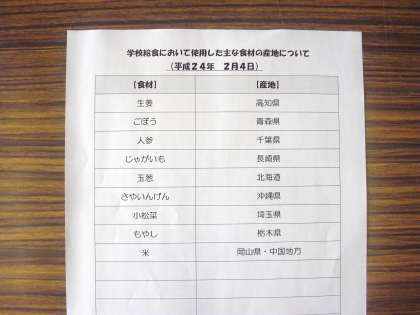 学校給食において使用した主な食材の産地について
（平成２４年　２月４日）
【食材】　【産地】
生姜　高知県
ごぼう　青森県
人参　千葉県
じゃがいも　長崎県
玉葱　北海道
さやいんげん　沖縄県
小松菜　埼玉県
もやし　栃木県
米　岡山県・中国地方